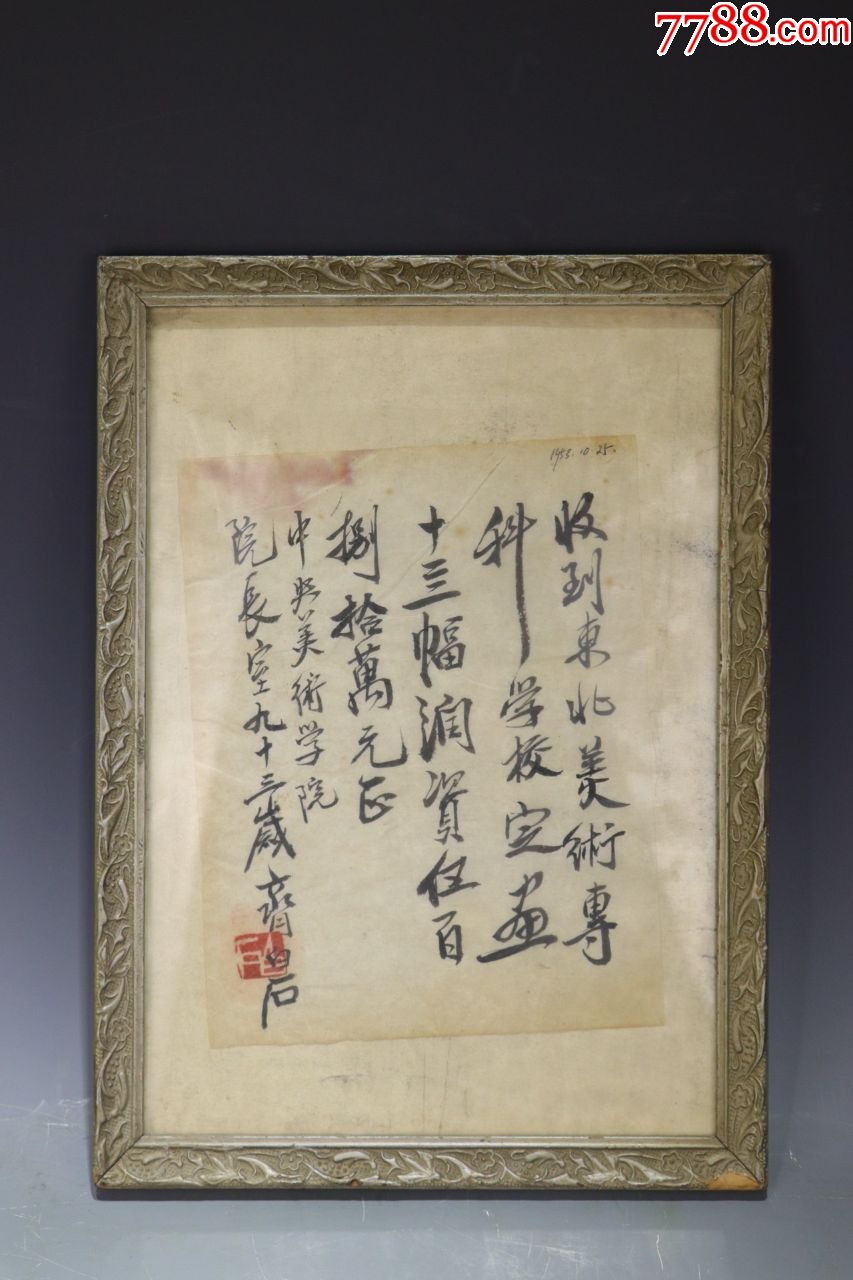 7788.com
1953.10.25.
收到東北美術專
科学校定画
十三幅润資伍百
捌拾萬元正
中央美術学院
院長室九十三歲齊白石